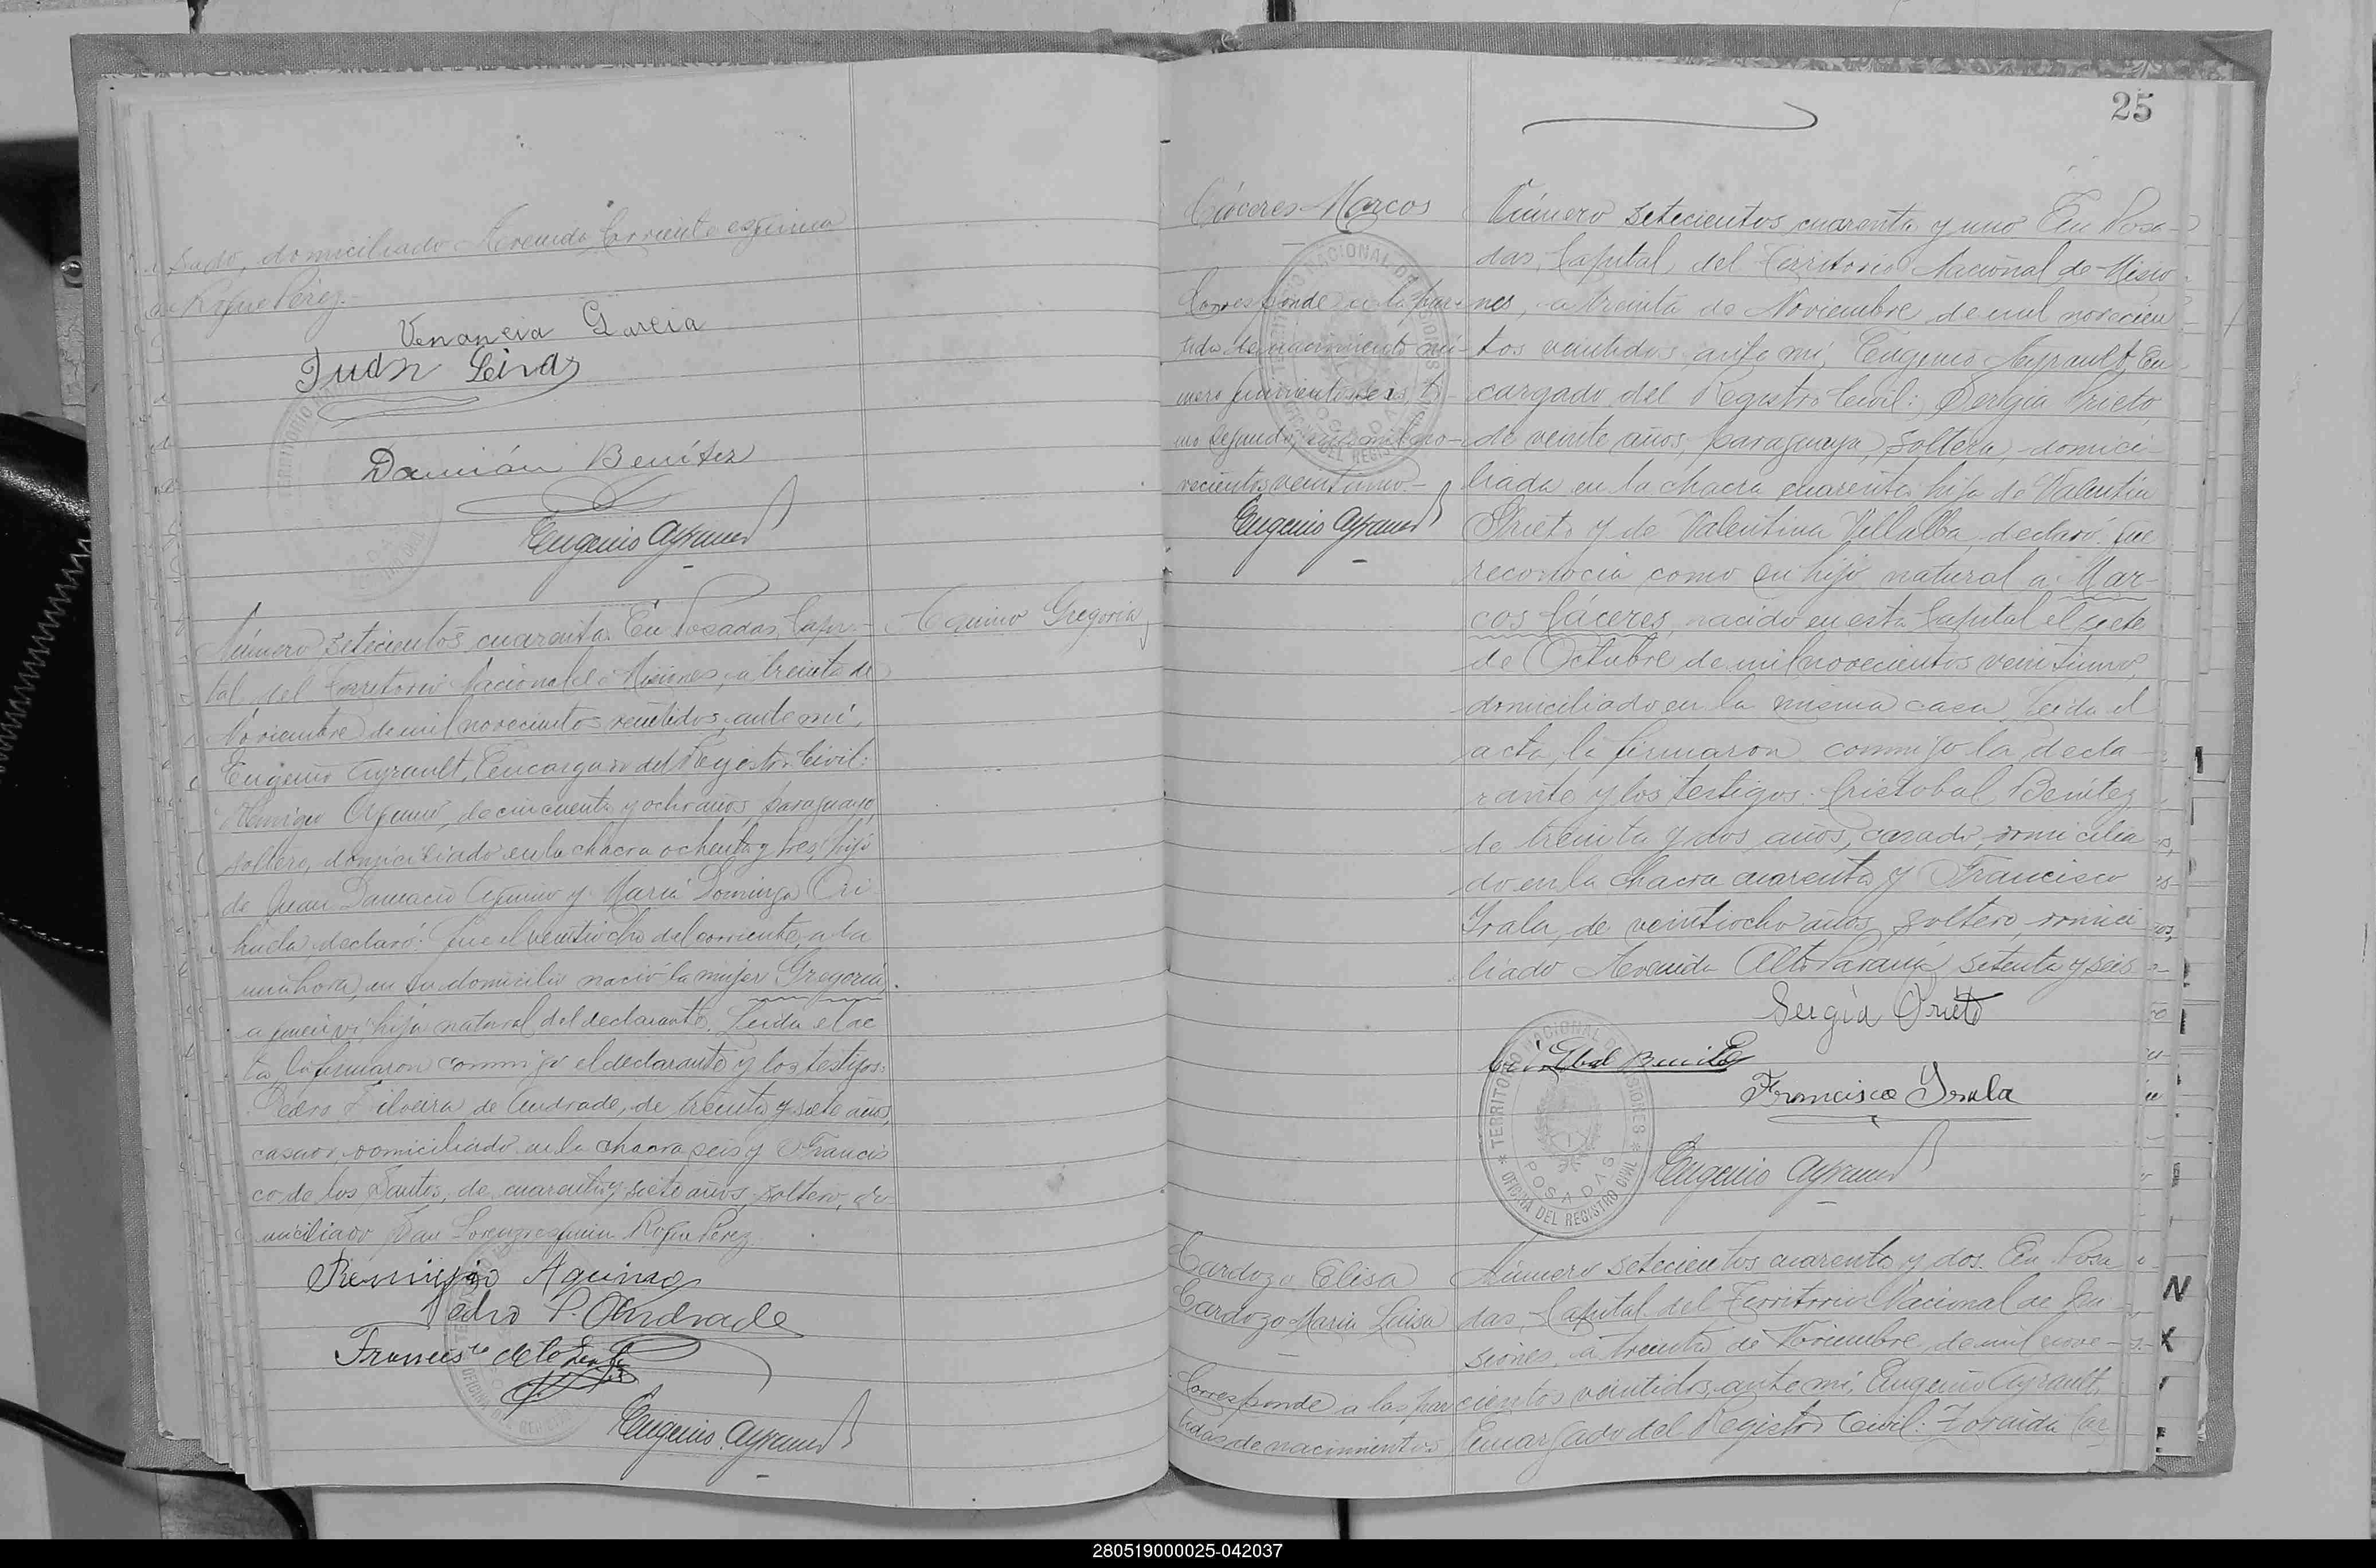 sado, domiciliado Avenida Corriente esquina
Roque Pérez.
Venancia Garcia
Juan Leiva
Damián Benítez
Eugenio Ayrault
Número setecientos cuarenta. En Posadas, Capi-
Aquino Gregoria
tal del Territorio Nacional de Misiones, a treinta de
Noviembre de mil novecientos veintidos, ante mí,
Eugenio Ayrault, Encargado del Registro Civil:
Remigio Aquino, de cincuenta y ocho años, paraguayo,
soltero, domiciliado en la chacra ochenta y tres, hijo
de Juan Damacio Aquino y María Dominga Ori
huela, declaró: Que el veintiocho del corriente, a la
una hora, en su domicilio nació la mujer Gregoria,
a quien vi, hija natural del declarante. Leída el ac
ta, la firmaron conmigo el declarante y los testigos:
Pedro Silveira de Andrade, de treinta y siete años,
casado, domiciliado en la chacra seis y Francis
co de los Santos, de cuarenta y siete años, soltero, do-
miciliado San Lorenzo esquina Roque Pérez.
Remigio Aquino
Pedro S. Andrade
Francisco de los Santos
Eugenio Ayrault
25
Cáceres Marcos
Corresponde a la par
tida de nacimiento nú-
mero quinientos seis, to-
mo segundo, año mil no-
vecientos veintiuno.-
Eugenio Ayrault
Número setecientos cuarenta y uno En Posa-
das, Capital del Territorio Nacional de Misio
nes, a treinta de Noviembre de mil novecien
tos veintidos, ante mí, Eugenio Ayrault, En
cargado del Registro Civil: Sergia Prieto,
de veinte años, paraguaya, soltera, domici-
liada en la chacra cuarenta, hija de Valentín
Prieto y de Valentina Villalba, declaró: Que
reconocia como su hijo natural a Mar-
cos Cáceres, nacido en esta Capital el siete
de Octubre de mil novecientos veintiuno,
domiciliado en la misma casa. Leída el
acta, la firmaron conmigo la decla-
rante y los testigos: Cristobal Benítez
de treinta y dos años, casado, domicilia
do en la chacra cuarenta y Francisco
Irala, de veintiocho años, soltero, domici
liado Avenida Alto Paraná setenta y seis
Sergia Prieto
Cristobal Benitez
Francisco Irala
TERRITORIO NACIONAL DE MISIONES
POSADAS
OFICINA DEL REGISTRO CIVIL
Eugenio Ayrault
Cardozo Elisa
Cardozo María Luisa
Corresponde a las par
tidas de nacimientos
Número setecientos cuarenta y dos. En Posa
das, Capital del Territorio Nacional de Mi
siones, a treinta de Noviembre de mil nove-
cientos veintidos, ante mí, Eugenio Ayrault,
Encargado del Registro Civil: Zoraida Car
N
280519000025-042037